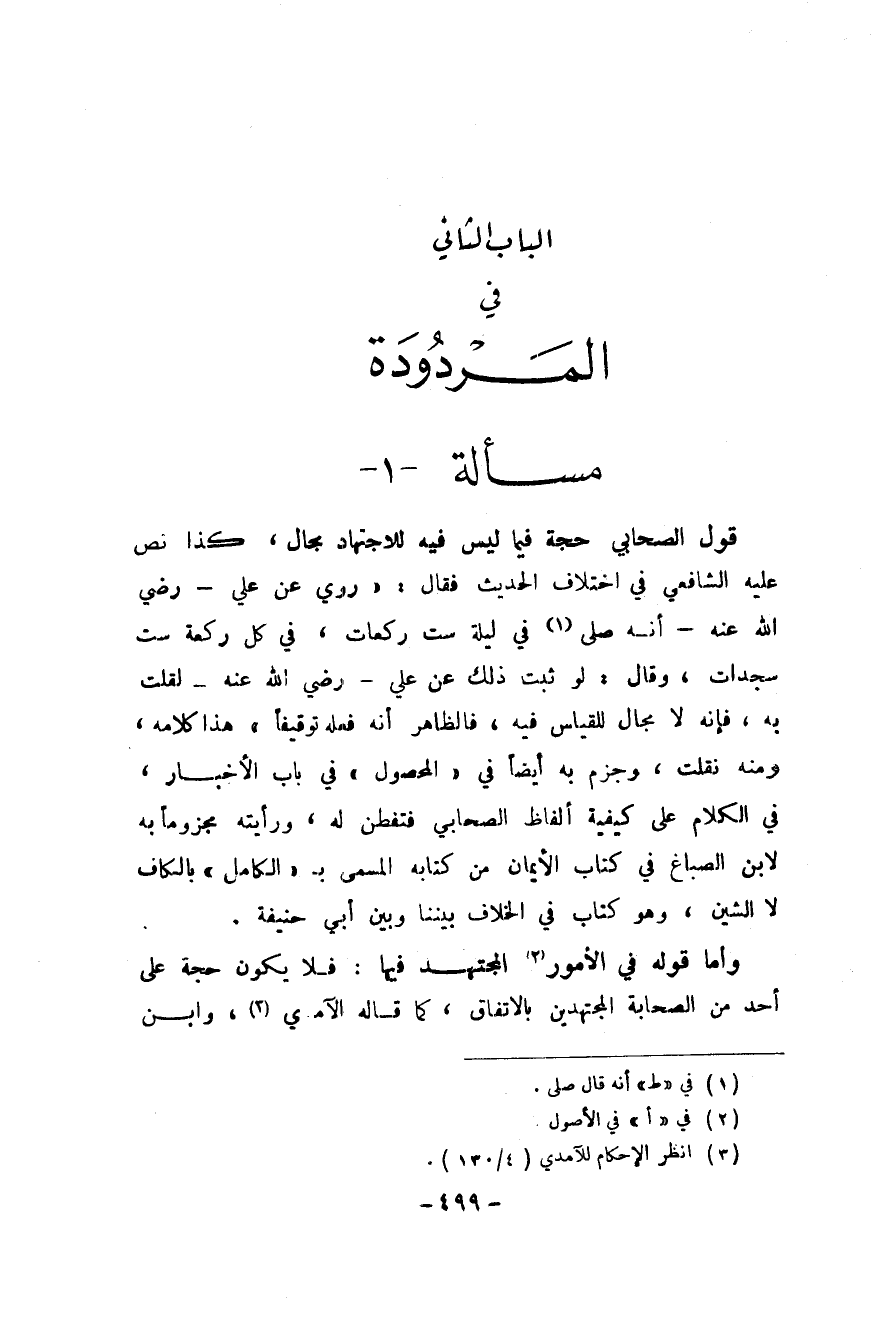 الباب الثاني
في
المَـــرْدُودَة
مســـألة -١-
قول الصحابي حجة فيما ليس فيه للاجتهاد مجال ، كـذا نص
عليه الشافعي في اختلاف الحديث فقال : « روي عن علي – رضي
الله عنه – أنـه صلى (١) في ليلة ست ركعات ، في كل ركعة ست
سجدات ، وقال : لو ثبت ذلك عن علي – رضي الله عنه – لقلت
به ، فإنه لا مجال للقياس فيه ، فالظاهر أنه فعله توقيفاً » هذا كلامه ،
ومنه نقلت ، وجزم به أيضاً في « المحصول » في باب الأخبـار ،
في الكلام على كيفية ألفاظ الصحابي فتفطن له ، ورأيته مجزوماً به
لابن الصباغ في كتاب الأيمان من كتابه المسمى بـ « الكامل » بالكاف
لا الشين ، وهو كتاب في الخلاف بيننا وبين أبي حنيفة .
وأما قوله في الأمور (٢) المجتهـد فيها : فـلا يكون حجة على
أحد من الصحابة المجتهدين بالاتفاق ، كما قـاله الآمدي (٣) ، وابـن
(١) في «ط» أنه قال صلى .
(٢) في « أ » في الأصول .
(٣) انظر الإحكام للآمدي ( ١٣٠/٤ ) .
- ٤٩٩ -